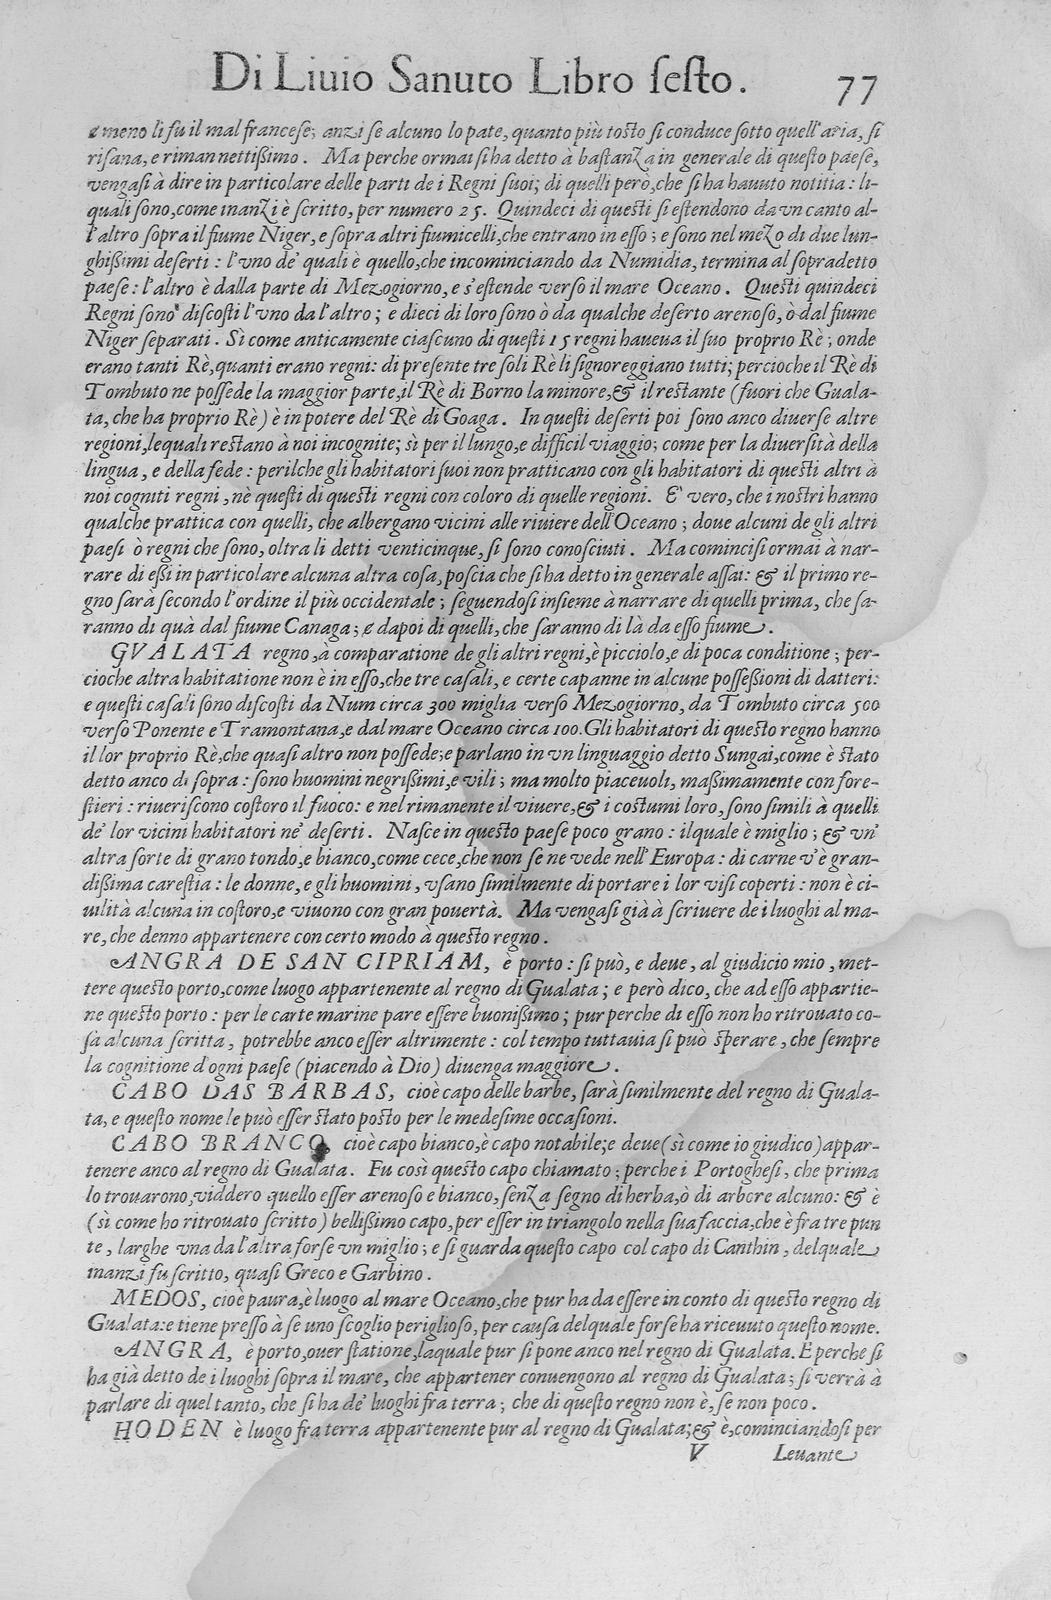 Di Liuio Sanuto Libro sesto. 77
e meno li fu il mal francese; anzi se alcuno lo pate, quanto più tosto si conduce sotto quell'aria, si
risana, e riman nettißimo. Ma perche ormai si ha detto à bastanza in generale di questo paese,
vengasi à dire in particolare delle parti de i Regni suoi; di quelli però, che si ha hauuto notitia: li-
quali sono, come inanzi è scritto, per numero 25. Quindeci di questi si estendono da vn canto al-
l'altro sopra il fiume Niger, e sopra altri fiumicelli, che entrano in esso; e sono nel mezo di due lun-
ghißimi deserti: l'vno de' quali è quello, che incominciando da Numidia, termina al sopradetto
paese: l'altro è dalla parte di Mezogiorno, e s'estende verso il mare Oceano. Questi quindeci
Regni sono discosti l'vno dal'altro; e dieci di loro sono ò da qualche deserto arenoso, ò dal fiume
Niger separati. Sì come anticamente ciascuno di questi 15 regni haueua il suo proprio Rè; onde
erano tanti Rè, quanti erano regni: di presente tre soli Rè li signoreggiano tutti; percioche il Rè di
Tombuto ne possede la maggior parte, il Rè di Borno la minore, & il restante (fuori che Guala-
ta, che ha proprio Rè) è in potere del Rè di Goaga. In questi deserti poi sono anco diuerse altre
regioni, lequali restano à noi incognite; sì per il lungo, e difficil viaggio; come per la diuersità della
lingua, e della fede: perilche gli habitatori suoi non pratticano con gli habitatori di questi altri à
noi cogniti regni, nè questi di questi regni con coloro di quelle regioni. E' vero, che i nostri hanno
qualche prattica con quelli, che albergano vicini alle riuiere dell'Oceano; doue alcuni de gli altri
paesi ò regni che sono, oltra li detti venticinque, si sono conosciuti. Ma comincisi ormai à nar-
rare di eßi in particolare alcuna altra cosa, poscia che si ha detto in generale assai: & il primo re-
gno sarà secondo l'ordine il più occidentale; seguendosi insieme à narrare di quelli prima, che sa-
ranno di quà dal fiume Canaga; e dapoi di quelli, che saranno di là da esso fiume.
GVALATA regno, à comparatione de gli altri regni, è picciolo, e di poca conditione; per-
cioche altra habitatione non è in esso, che tre casali, e certe capanne in alcune possessioni di datteri:
e questi casali sono discosti da Num circa 300 miglia verso Mezogiorno, da Tombuto circa 500
verso Ponente e Tramontana, e dal mare Oceano circa 100. Gli habitatori di questo regno hanno
il lor proprio Rè, che quasi altro non possede; e parlano in vn linguaggio detto Sungai, come è stato
detto anco di sopra: sono huomini negrißimi, e vili; ma molto piaceuoli, maßimamente con fore-
stieri: riueriscono costoro il fuoco: e nel rimanente il viuere, & i costumi loro, sono simili à quelli
de' lor vicini habitatori ne' deserti. Nasce in questo paese poco grano: ilquale è miglio; & vn'
altra sorte di grano tondo, e bianco, come cece, che non se ne vede nell'Europa: di carne v'è gran-
dißima carestia: le donne, e gli huomini, vsano similmente di portare i lor visi coperti: non è ci-
uilità alcuna in costoro, e viuono con gran pouertà. Ma vengasi già à scriuere de i luoghi al ma-
re, che denno appartenere con certo modo à questo regno.
ANGRA DE SAN CIPRIAM, è porto: si può, e deue, al giudicio mio, met-
tere questo porto, come luogo appartenente al regno di Gualata; e però dico, che ad esso appartie-
ne questo porto: per le carte marine pare essere buonißimo; pur perche di esso non ho ritrouato co-
sa alcuna scritta, potrebbe anco esser altrimente: col tempo tuttauia si può sperare, che sempre
la cognitione d'ogni paese (piacendo à Dio) diuenga maggiore.
CABO DAS BARBAS, cioè capo delle barbe, sarà similmente del regno di Guala-
ta, e questo nome le può esser stato posto per le medesime occasioni.
CABO BRANCO, cioè capo bianco, è capo notabile; e deue (sì come io giudico) appar-
tenere anco al regno di Gualata. Fu così questo capo chiamato; perche i Portoghesi, che prima
lo trouarono, viddero quello esser arenoso e bianco, senza segno di herba, ò di arbore alcuno: & è
(sì come ho ritrouato scritto) bellißimo capo, per esser in triangolo nella sua faccia, che è fra tre pun
te, larghe vna dal'altra forse vn miglio; e si guarda questo capo col capo di Canthin, delquale
inanzi fu scritto, quasi Greco e Garbino.
MEDOS, cioè paura, è luogo al mare Oceano, che pur ha da essere in conto di questo regno di
Gualata: e tiene presso à se uno scoglio periglioso, per causa delquale forse ha riceuuto questo nome.
ANGRA, è porto, ouer statione, laquale pur si pone anco nel regno di Gualata. E perche si
ha già detto de i luoghi sopra il mare, che appartener conuengono al regno di Gualata; si verrà à
parlare di quel tanto, che si ha de' luoghi fra terra; che di questo regno non è, se non poco.
HODEN è luogo fra terra appartenente pur al regno di Gualata; & è, cominciandosi per
V Leuante